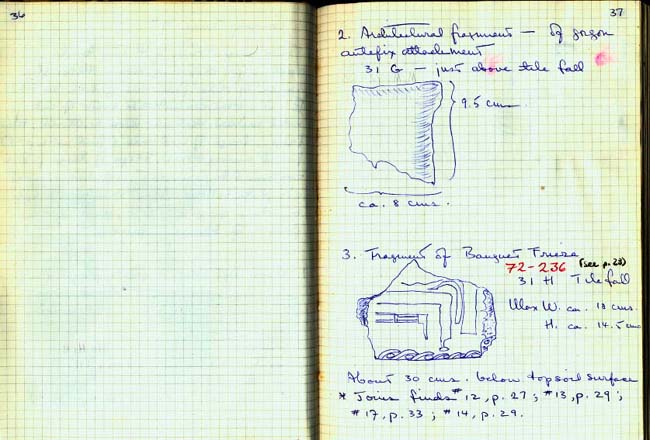 36
37
2. Architectural fragment — of gorgon
antefix attachment
31 G — just above tile fall
9.5 cms.
ca. 8 cms.
3. Fragment of Banquet Frieze
72-236 (see p. 23)
31 H Tile fall
Max W. ca. 18 cms.
H. ca. 14.5 cms
About 30 cms. below topsoil surface
* Joins finds #12, p. 27; #13, p. 29;
#17, p. 33; #14, p. 29.